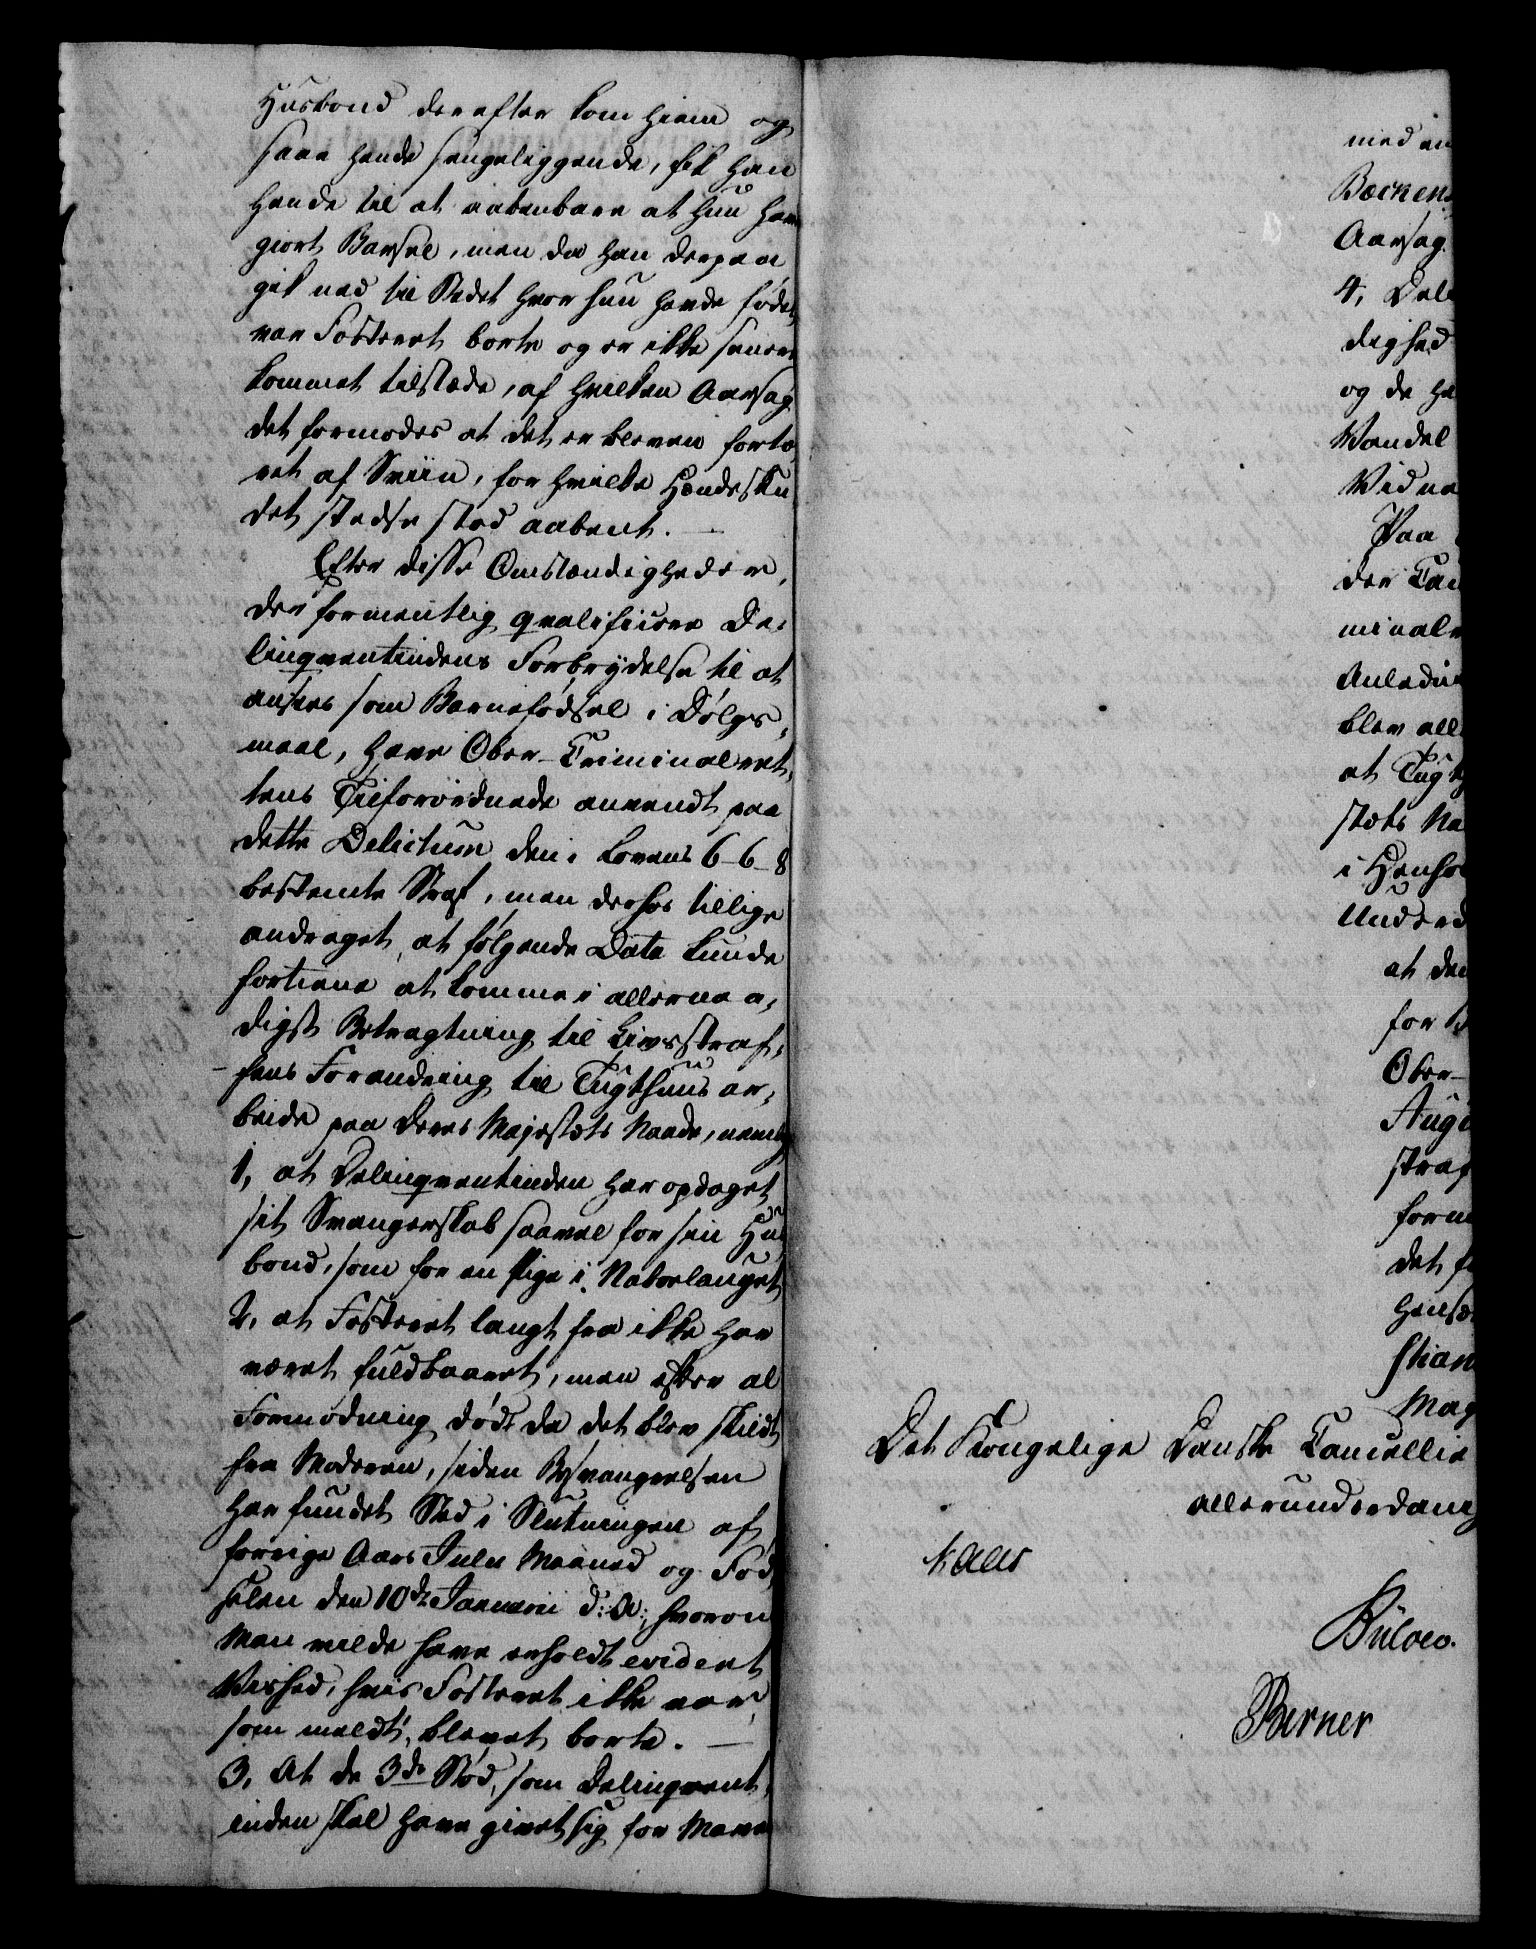 Husbond derefter kom hiem og
saae hende sengeliggende, fik han
hende til at aabenbare at hun havde
giort Barsel, men da han derpaa
gik ned til Stedet hvor hun havde fødet
var Fosteret borte og er ikke senere
kommet tilstæde, af hvilken Aarsag
det formodes at det er bleven fortæ-
ret af Sviin, for hvilke
det stedse stod aabent. —
Efter disse Omstændigheder,
der formentlig qvalificere De-
linqventindens Forbrydelse til at
ansees som Barnefødsel i Dølgs-
maal, have Ober-Criminalret-
tens Tilforordnede anvendt paa
dette Delictum den i Lovens 6-6-8
bestemte Straf, men derhos tillige
andraget, at følgende Data kunde
fortiene at komme i allernaa-
digst Betragtning til Livsstraf-
fens Forandring til Tugthuusar-
beide paa Deres Majestæts Naade, nemlig
1, at Delinqventinden har opdaget
sit Svangerskab saavel for sin Hus-
bond, som for en Pige i Naboelauget
2, at Fosteret langt fra ikke har
været fuldbaaret, men efter al
Formodning død da det blev skildt
fra Moderen, siden Besvangrelsen
har fundet Sted i Slutningen af
forrige Aars Julii Maaned og Fød-
selen den 10de Januarii d: A:, hvorom
Man vilde have erholdt evident
Vished, hvis Fosteret ikke var,
som meldt, blevet borte. —
3, At de 3de Stød, som Delinqvent-
inden skal have givet sig for Maven
med en
Aarsag.
4,
dighed
og de
Vandel
Paa
der Can
minalr
Anledn
blev all
at Tugt
stæts Na
i Henhol
Underd
at den
for B
Ober-
Augu
straf
form
det
Mag
Det Kongelige Danske Cancellie
allerunderdanig
Kaas
Bülow.
Berner